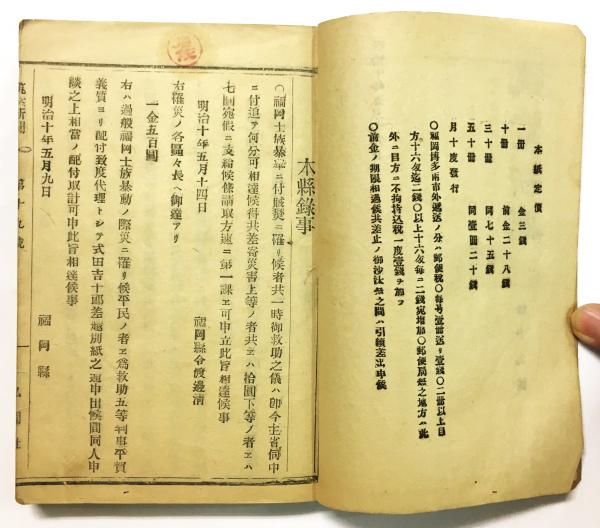 本紙定價
一冊 金三錢
十冊 前金二十八錢
三十冊 同七十五錢
五十冊 同壹圓二十錢
月十度發行
〇福岡博多兩市外遞送ノ分ハ郵便稅〇每号壹冊送リ壹錢〇二冊以上目
方十六匁迄二錢〇以上十六匁每ニ二錢宛增加〇郵便局無之地方ハ此
外ニ目方ニ不拘持込稅一度壹錢ヲ加フ
〇前金ノ期限相過候共差止ノ御沙汰無之間ハ引續差出申候
本縣錄事
〇福岡士族暴擧ニ付賊燹ニ罹リ候者共一時御救助之儀ハ即今主省伺中
ニ付追テ何分可相達候得共差當災害上等ノ者共ヱハ拾圓下等ノ者ヱハ
七圓宛假ニ支給候條請取方速ニ第一課ヱ可申立此旨相達候事
明治十年五月十四日 福岡縣令渡邊清
右罹災ノ各區々長ヘ御達アリ
一金五百圓
右ハ過般福岡士族暴動ノ際災ニ罹リ候平民ノ者ヱ爲救助五等判事平賀
義質ヨリ配付致度代理トシテ式田吉十郎差越別紙之通申出候間同人申
談之上相當ノ配付取計可申此旨相達候事
明治十年五月九日 福岡縣
筑紫新聞 第十九號
弘聞社